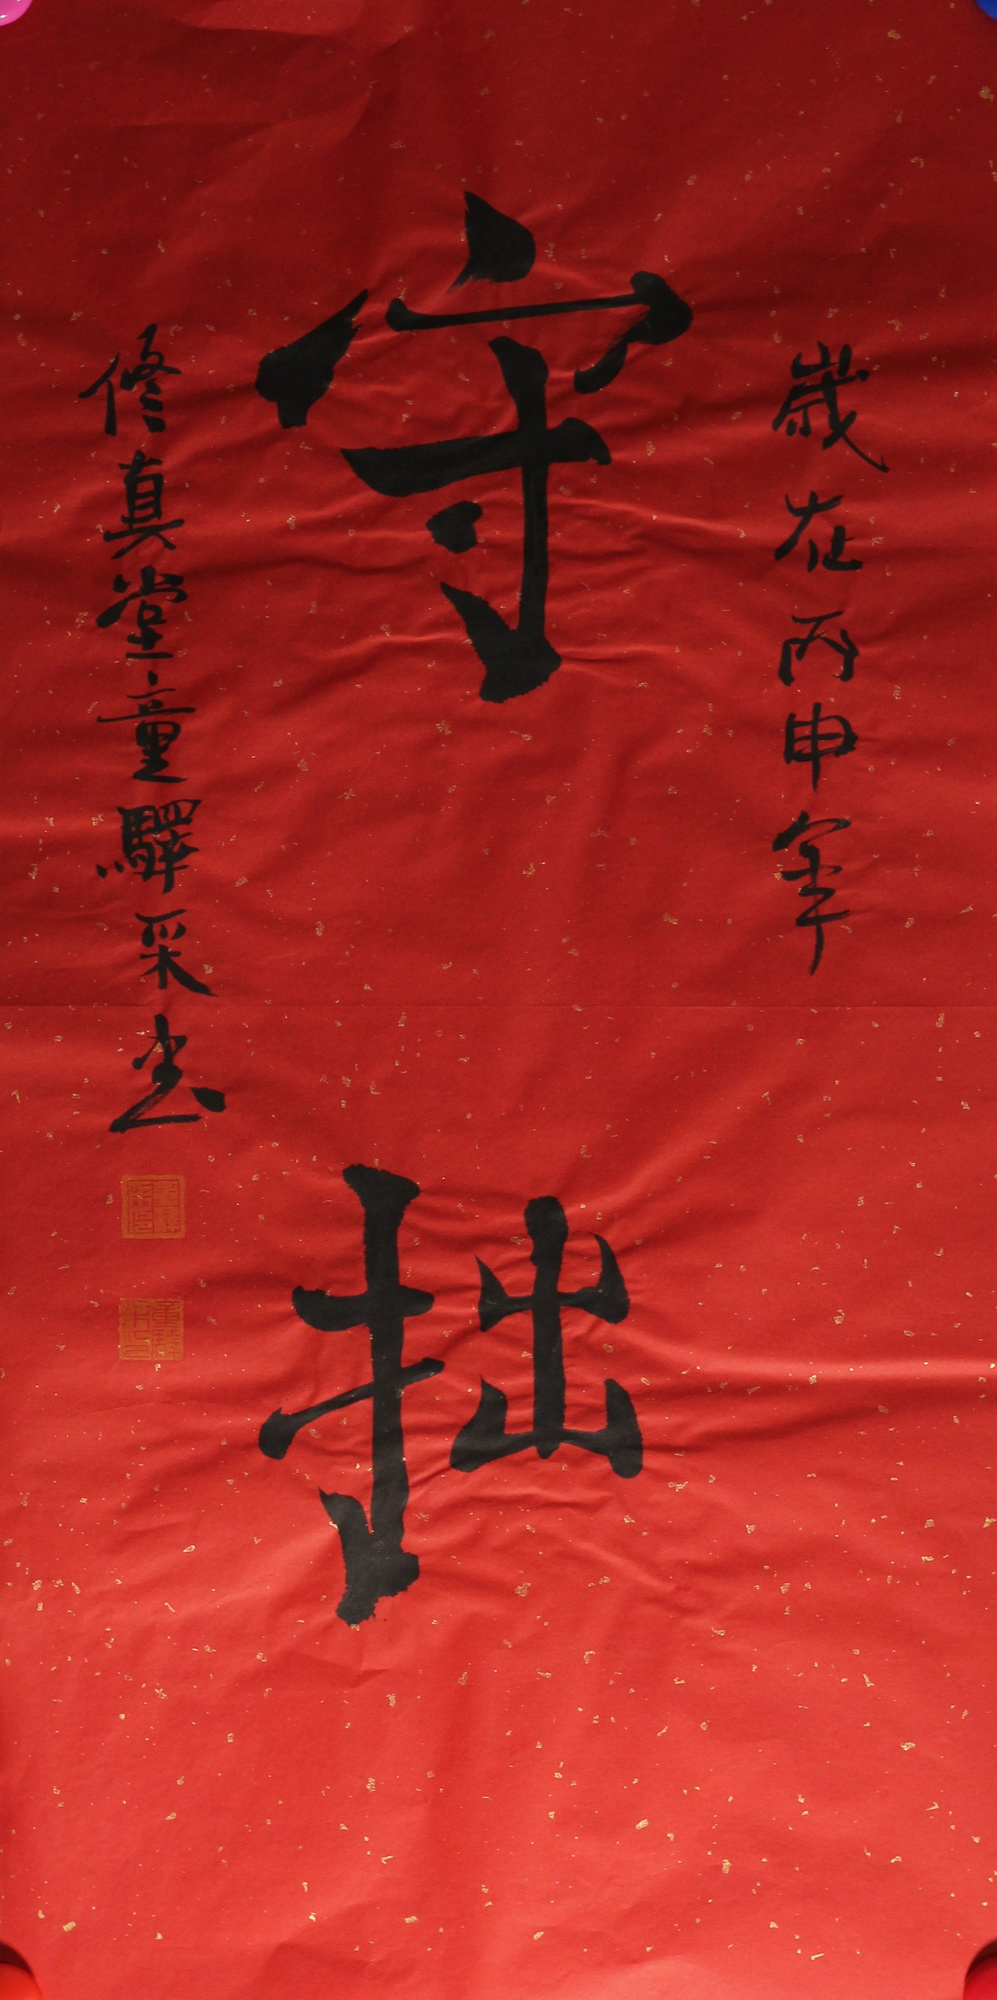 歲在丙申年
守拙
修真堂童驛采書